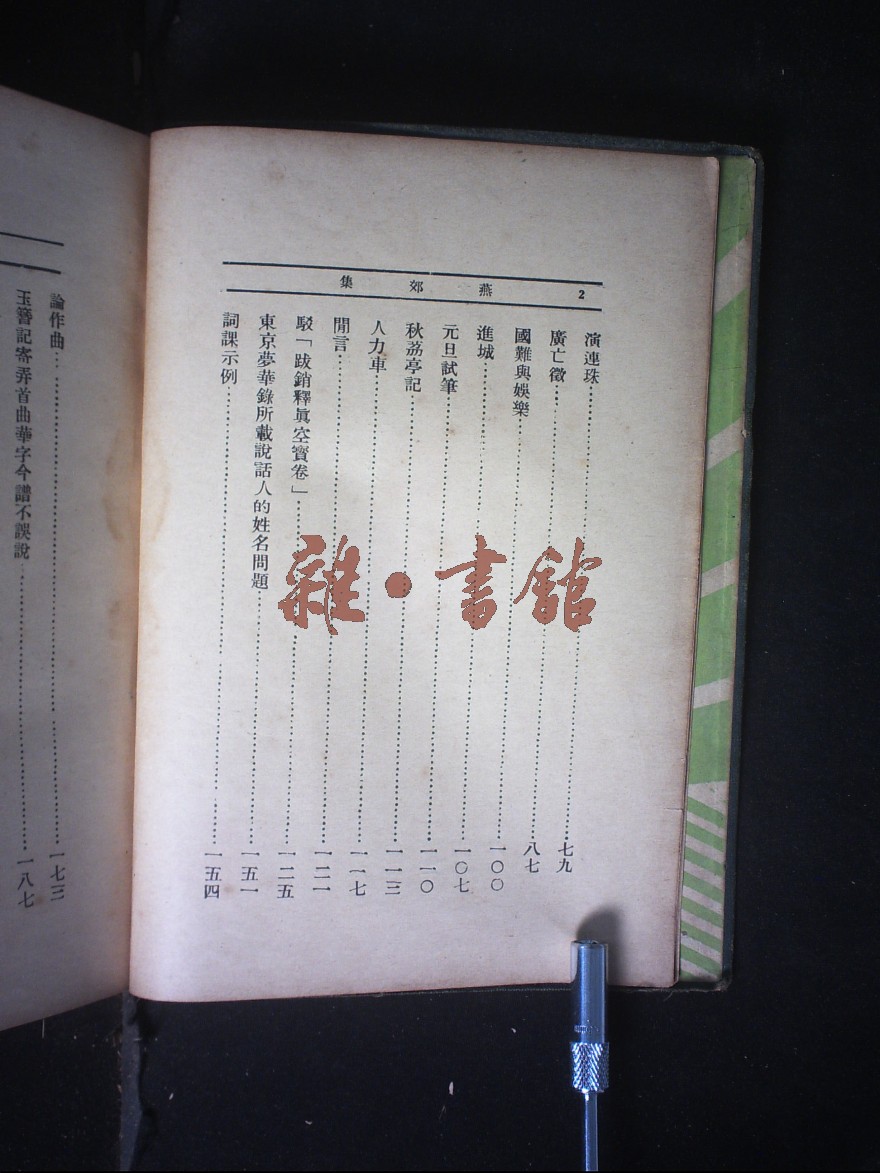 2 燕郊集
演連珠……七九
廣亡徵……八七
國難與娛樂……一〇〇
進城……一〇七
元旦試筆……一一〇
秋荔亭記……一一三
人力車……一一七
閒言……一二一
駁「跋銷釋眞空寳卷」……一二五
東京夢華錄所載說話人的姓名問題……一五一
詞課示例……一五四
論作曲……一七三
玉簪記寄弄首曲華字今譜不誤說……一八七
雜・書館